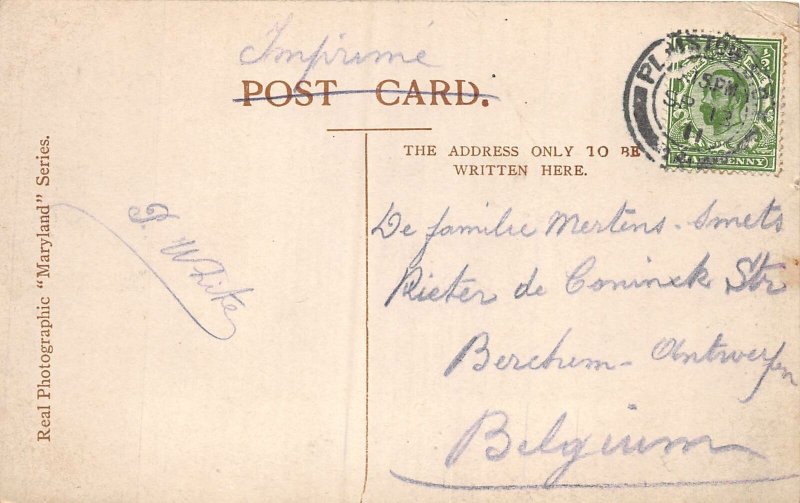 Imprimé
POST CARD.
THE ADDRESS ONLY TO BE
WRITTEN HERE.
Real Photographic "Maryland" Series.
P. White
De familie Mertens-Smets
Pieter de Coninck Str
Berchem - Antwerpen
Belgium
PLAISTOW
5 PM
SP 13
11
HALFPENNY